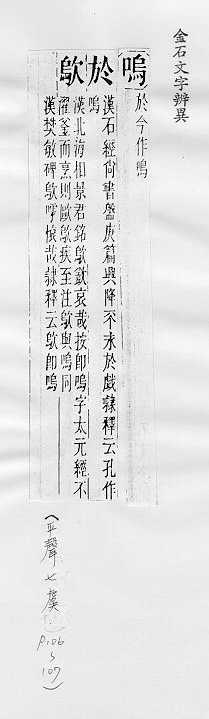 金石文字辨異
嗚 於今作嗚
於 漢石經尚書盤庚篇興降不永於戲隸釋云孔作
嗚
歍 漢北海相景君銘歍歔哀哉按即嗚字太元經不
濯釜而烹則歐歍疾至注歍與嗚同
漢樊敏碑歍呼懷哉隸釋云歍即嗚
(平聲七虞
P.106
107)